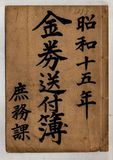 昭和十五年
金券送付簿
庶務課